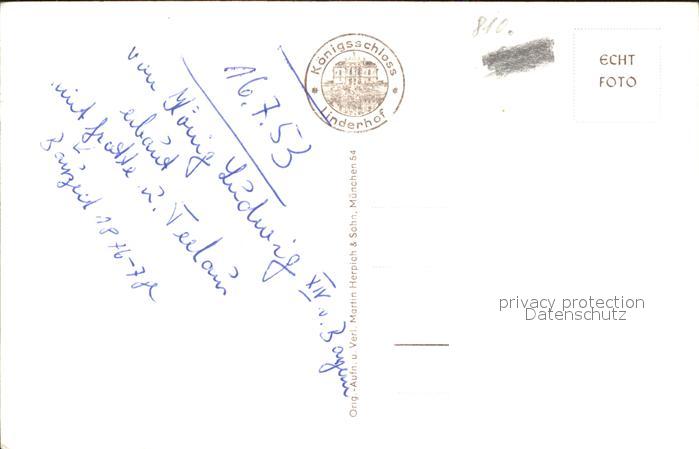 16.7.53
von König Ludwig XIV v. Bayern
erbaut
mit Grotte u.
Bauzeit 1876-78
Königsschloss
Linderhof
810.
ECHT
FOTO
Orig.-Aufn. u. Verl. Martin Herpich & Sohn, München 54
privacy protection
Datenschutz